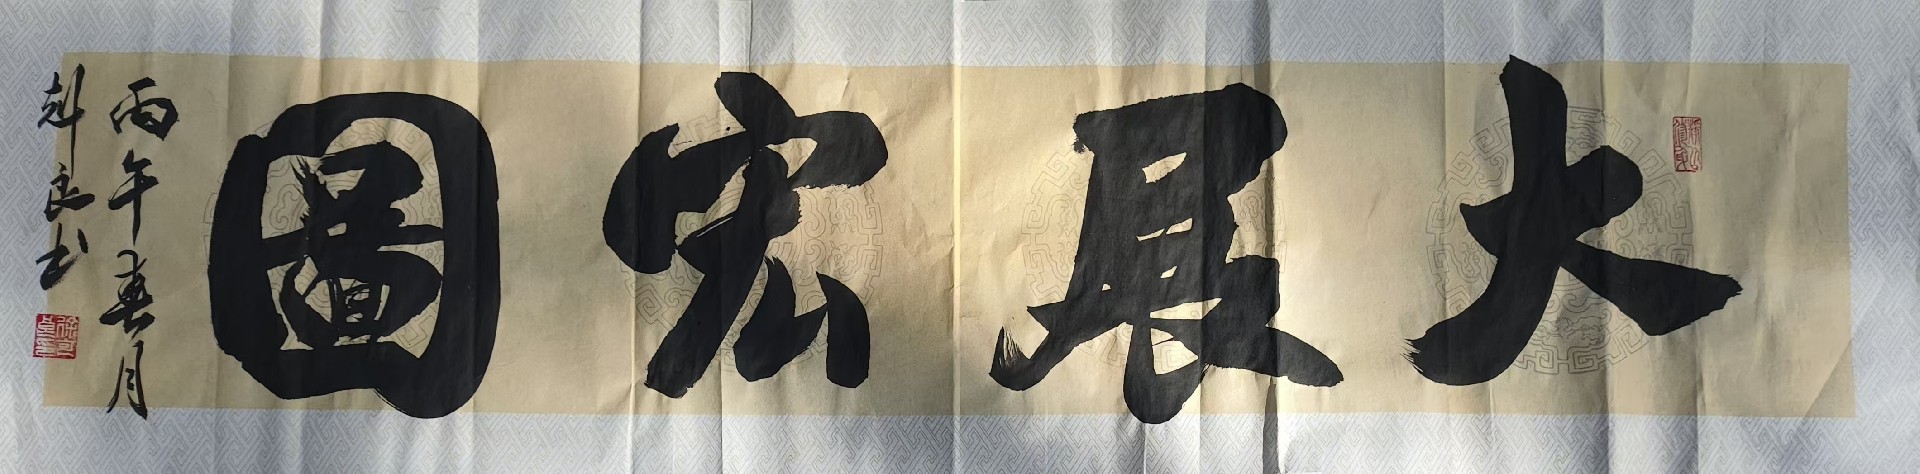 大展宏圖
丙午春月
良书